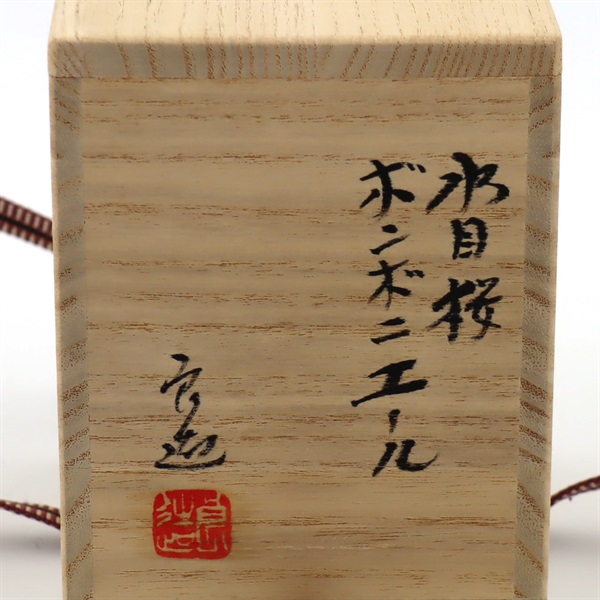 水目桜
ボンボニエール